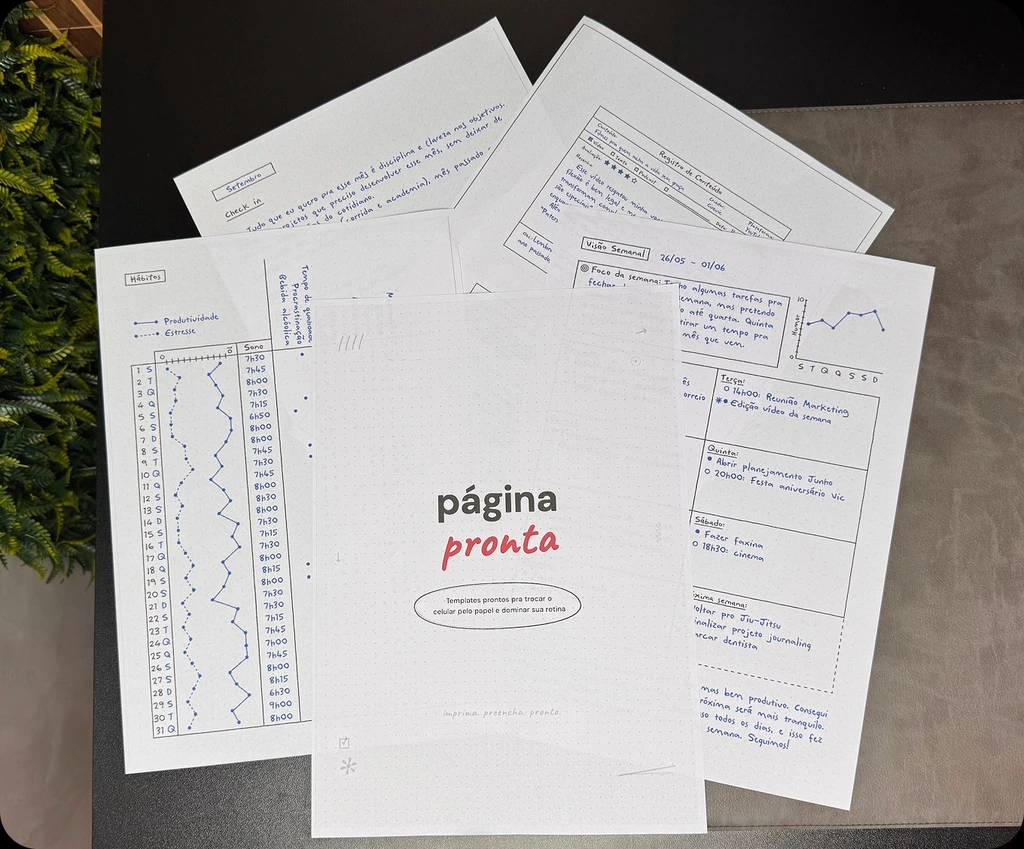 Setembro
Check in
Tudo que eu quero pra esse mês é disciplina e clareza nos objetivos.
projetos que preciso desenvolver esse mês, sem deixar de
do cotidiano.
(corrida e academia), mês passado
Registro de Conteúdo
Conteúdo:
Vídeo
Texto
Podcast
Avaliação: ★★★★☆
Resumo:
Esse vídeo resgatou minha
Flexão é bem legal e
transformam
são especiais
ou lembra
ano passado
Hábitos
Produtividade
Estresse
0 10 Sono
Tempo de qualidade
Procrastinação
Bebida alcóolica
1 S 7h30
2 T 7h45
3 Q 8h00
4 Q 7h30
5 S 7h15
6 S 6h50
7 D 8h00
8 S 8h00
9 T 7h45
10 Q 7h30
11 Q 7h45
12 S 8h00
13 S 8h30
14 D 8h00
15 S 7h30
16 T 7h15
17 Q 7h30
18 Q 8h00
19 S 8h15
20 S 8h00
21 D 7h30
22 S 7h30
23 T 7h15
24 Q 7h45
25 Q 7h00
26 S 7h45
27 S 8h00
28 D 8h15
29 S 6h30
30 T 9h00
31 Q 8h00
Visão Semanal 26/05 - 01/06
Foco da semana: algumas tarefas pra
fechar semana, mas pretendo
até quarta. Quinta
tirar um tempo pra
mês que vem.
10
Humor
S T Q Q S S D
Terça:
14h00: Reunião Marketing
Edição vídeo da semana
Quinta:
Abrir planejamento Junho
20h00: Festa aniversário Vic
Sábado:
Fazer faxina
18h30: cinema
xima semana:
oltar pro Jiu-Jitsu
inalizar projeto journaling
arcar dentista
mas bem produtivo. Consegui
róxima será mais tranquilo.
so todos os dias, e isso fez
semana. Seguimos!
página
pronta
Templates prontos pra trocar o
celular pelo papel e dominar sua rotina
imprima. preencha. pronto.